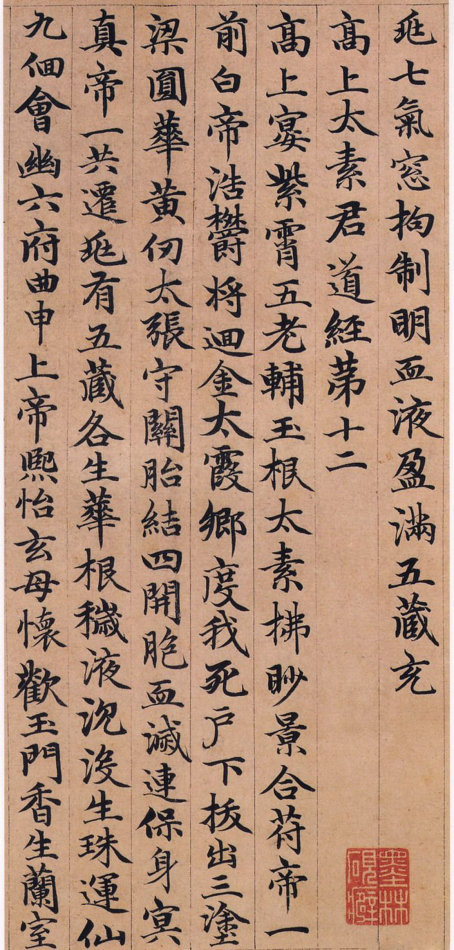 兆七氣窓拘制明血液盈滿五蔵充
髙上太素君道經苐十二
髙上宴紫霄五老輔玉根太素拂眇景合苻帝一
前白帝浩欝将迴金太霞郷度我死戶下拔出三塗
梁圓華黃仞太張守關胎結四開胞血滅連保身冥
真帝一共遷兆有五蔵各生華根穢液況沒生珠運仙
九個會幽六府曲申上帝熈怡玄母懷歡玉門香生蘭室
墨林硯癖